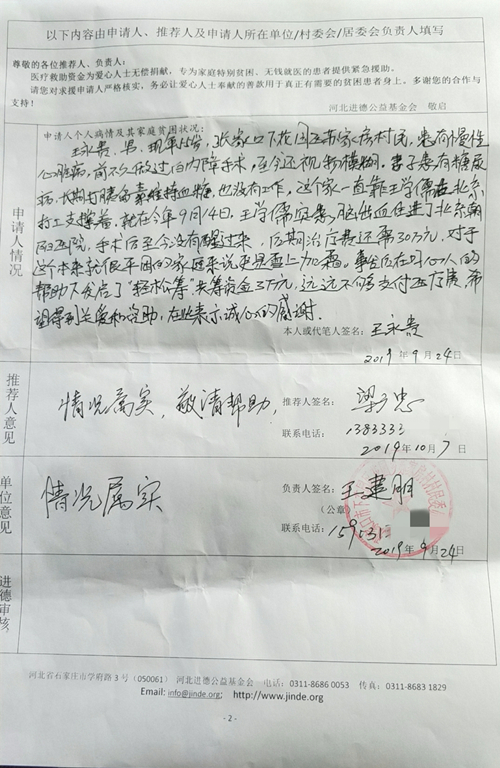 以下内容由申请人、推荐人及申请人所在单位/村委会/居委会负责人填写
尊敬的各位推荐人、负责人:
医疗救助资金为爱心人士无偿捐献,专为家庭特别贫困、无钱就医的患者提供紧急援助。
请您对求援申请人严格核实,务必让爱心人士奉献的善款用于真正有需要的贫困患者身上。多谢您的合作与
支持!
河北进德公益基金会 敬启
申请人情况
申请人个人病情及其家庭贫困状况:
王永贵、男、现年 岁,张家口下花园 家房村民,患有慢性
心脏病,前不久做过白内障手术,至今还视物模糊,妻子患有糖尿
病,长期打胰岛素维持血糖,也没有工作,这个家一直靠王学儒在北京
打工支撑着,就在今年9月14日,王学儒突患脑出血住进了北京朝
阳医院,手术后至今没有醒过来,后期治疗费还需30万元,对于
这个本来就很平困的家庭来说更是雪上加霜。事发后在 人的
帮助下发启了“轻松筹”共筹资金3万元,远远不够支付医疗费,希
望得到关爱和资助,在此表示诚心的感谢。
本人或代笔人签名:王永贵
2019年9月24日
推荐人意见
情况属实,敬请帮助,
推荐人签名:梁 忠
联系电话:1383333
2019年10月7日
单位意见
情况属实
负责人签名:王建明
(公章)
联系电话:159531
2019年9月24日
进德审核
河北省石家庄市学府路3号(050061) 河北进德公益基金会 电话:0311-8686 0053 传真:0311-8683 1829
Email: info@jinde.org; http://www.jinde.org
- 2 -